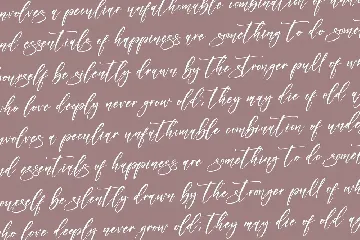 nvolves a peculiar unfathomable combination of unde
nd essentials of happiness are something to do, some
ourself be silently drawn by the stronger pull of wh
ho love deeply never grow old; they may die of old a
nvolves a peculiar unfathomable combination of unde
nd essentials of happiness are something to do, some
ourself be silently drawn by the stronger pull of wh
ho love deeply never grow old; they may die of old a